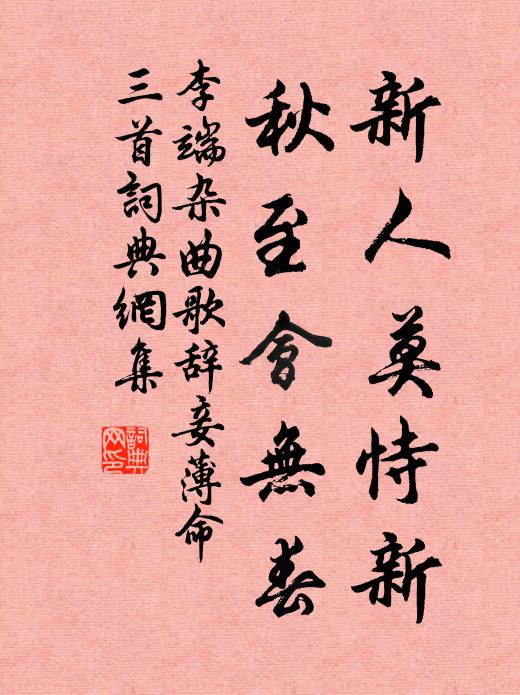 新人莫恃新
秋至會無春
李端杂曲歌辞妾薄命
三首詞典網集
詞典
网印